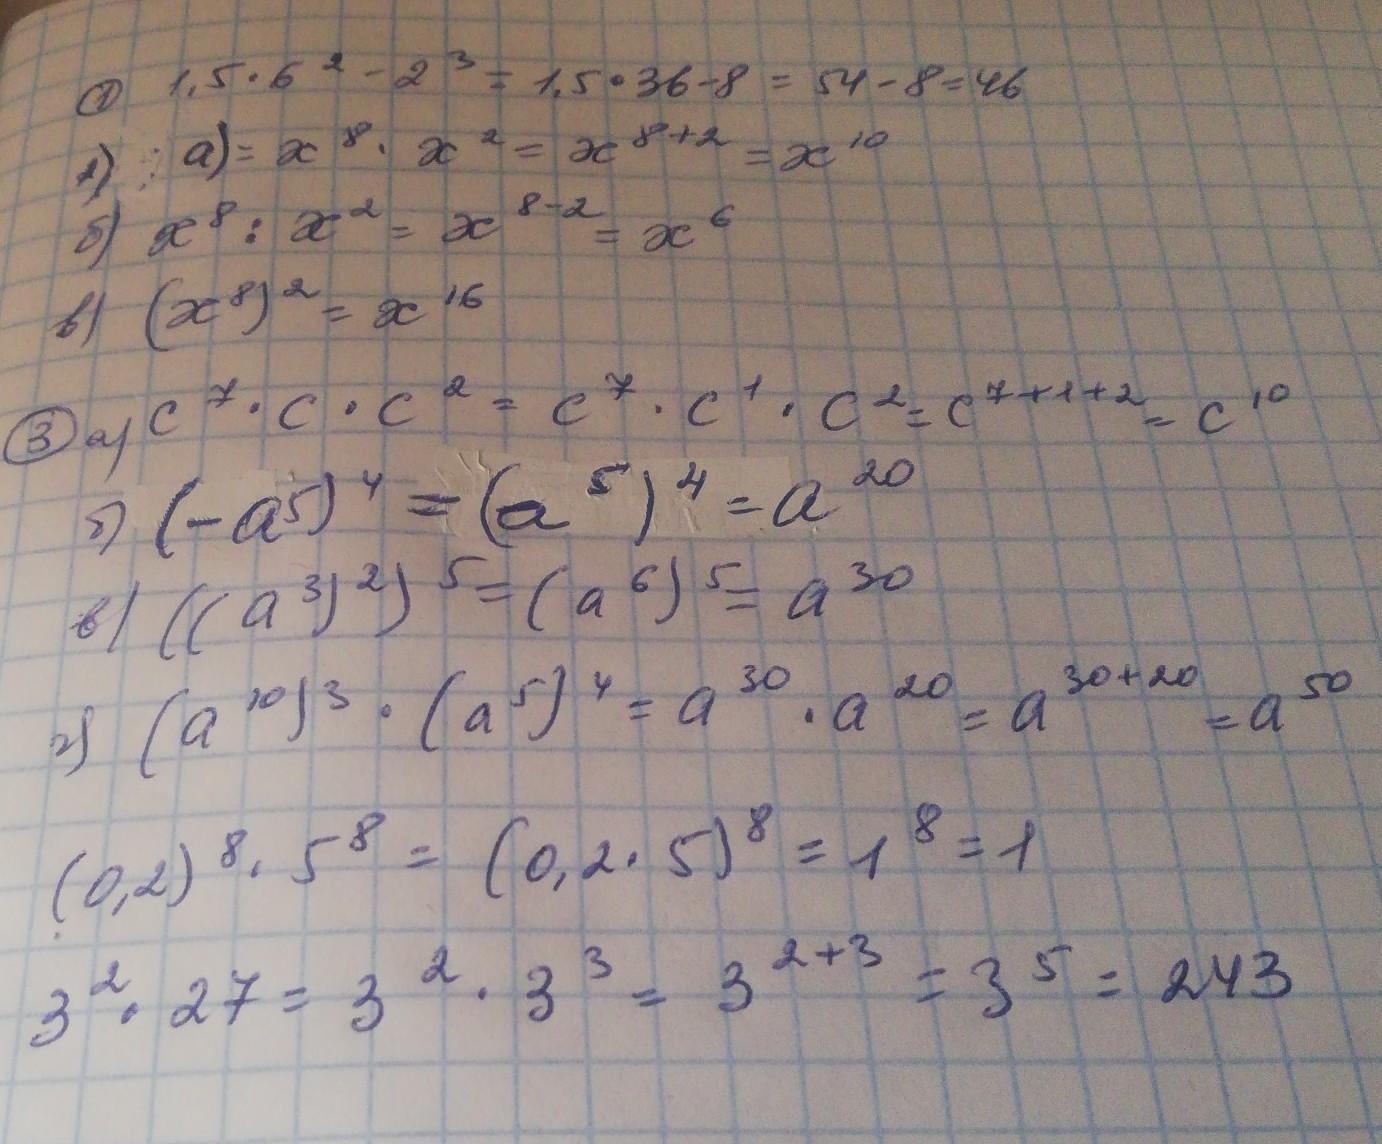 1) 1,5·6² - 2³ = 1,5·36-8 = 54-8=46
2) а) = x⁸ · x² = x⁸⁺² = x¹⁰
б) x⁸ : x² = x⁸⁻² = x⁶
в) (x⁸)² = x¹⁶
3 а) c⁷ · c · c² = c⁷ · c¹ · c² = c⁷⁺¹⁺² = c¹⁰
б) (-a⁵)⁴ = (a⁵)⁴ = a²⁰
в) ((a³)²)⁵ = (a⁶)⁵ = a³⁰
г) (a¹⁰)³ · (a⁵)⁴ = a³⁰ · a²⁰ = a³⁰⁺²⁰ = a⁵⁰
(0,2)⁸ · 5⁸ = (0,2 · 5)⁸ = 1⁸ = 1
3² · 27 = 3² · 3³ = 3²⁺³ = 3⁵ = 243